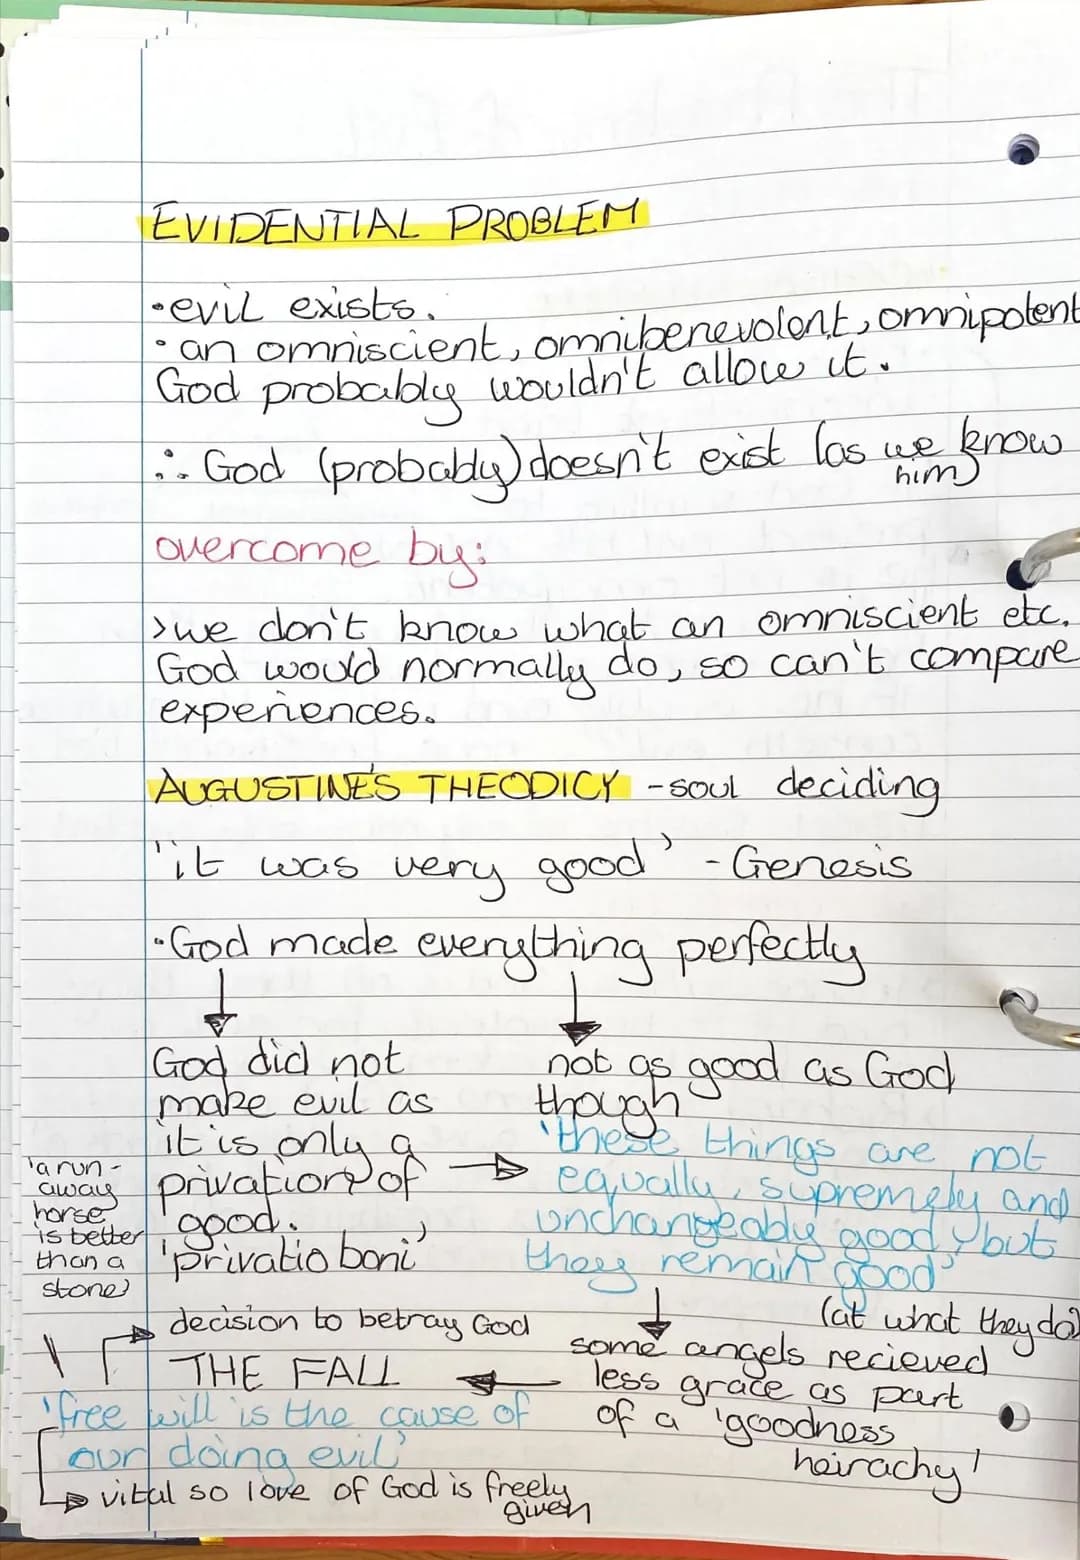 EVIDENTIAL PROBLEM
•evil exists.
• an omniscient, omnibenevolent, omnipotent
God probably wouldn't allow it.
∴ God (probably) doesn't exist (as we know
him)
overcome by:
>we don't know what an omniscient etc.
God would normally do, so can't compare
experiences.
AUGUSTINE'S THEODICY -soul deciding
'it was very good' - Genesis
•God made everything perfectly
God did not
make evil as
it is only a
privation of
good.
'privatio boni'
'a run-
away
horse
is better
than a
stone'
not as good as God
though
'these things are not
equally, supremely and
unchangeably good, but
they remain good'
(at what they do)
some angels recieved
less grace as part
of a 'goodness
heirachy'
decision to betray God
THE FALL
'free will is the cause of
our doing evil'
vital so love of God is freely
given